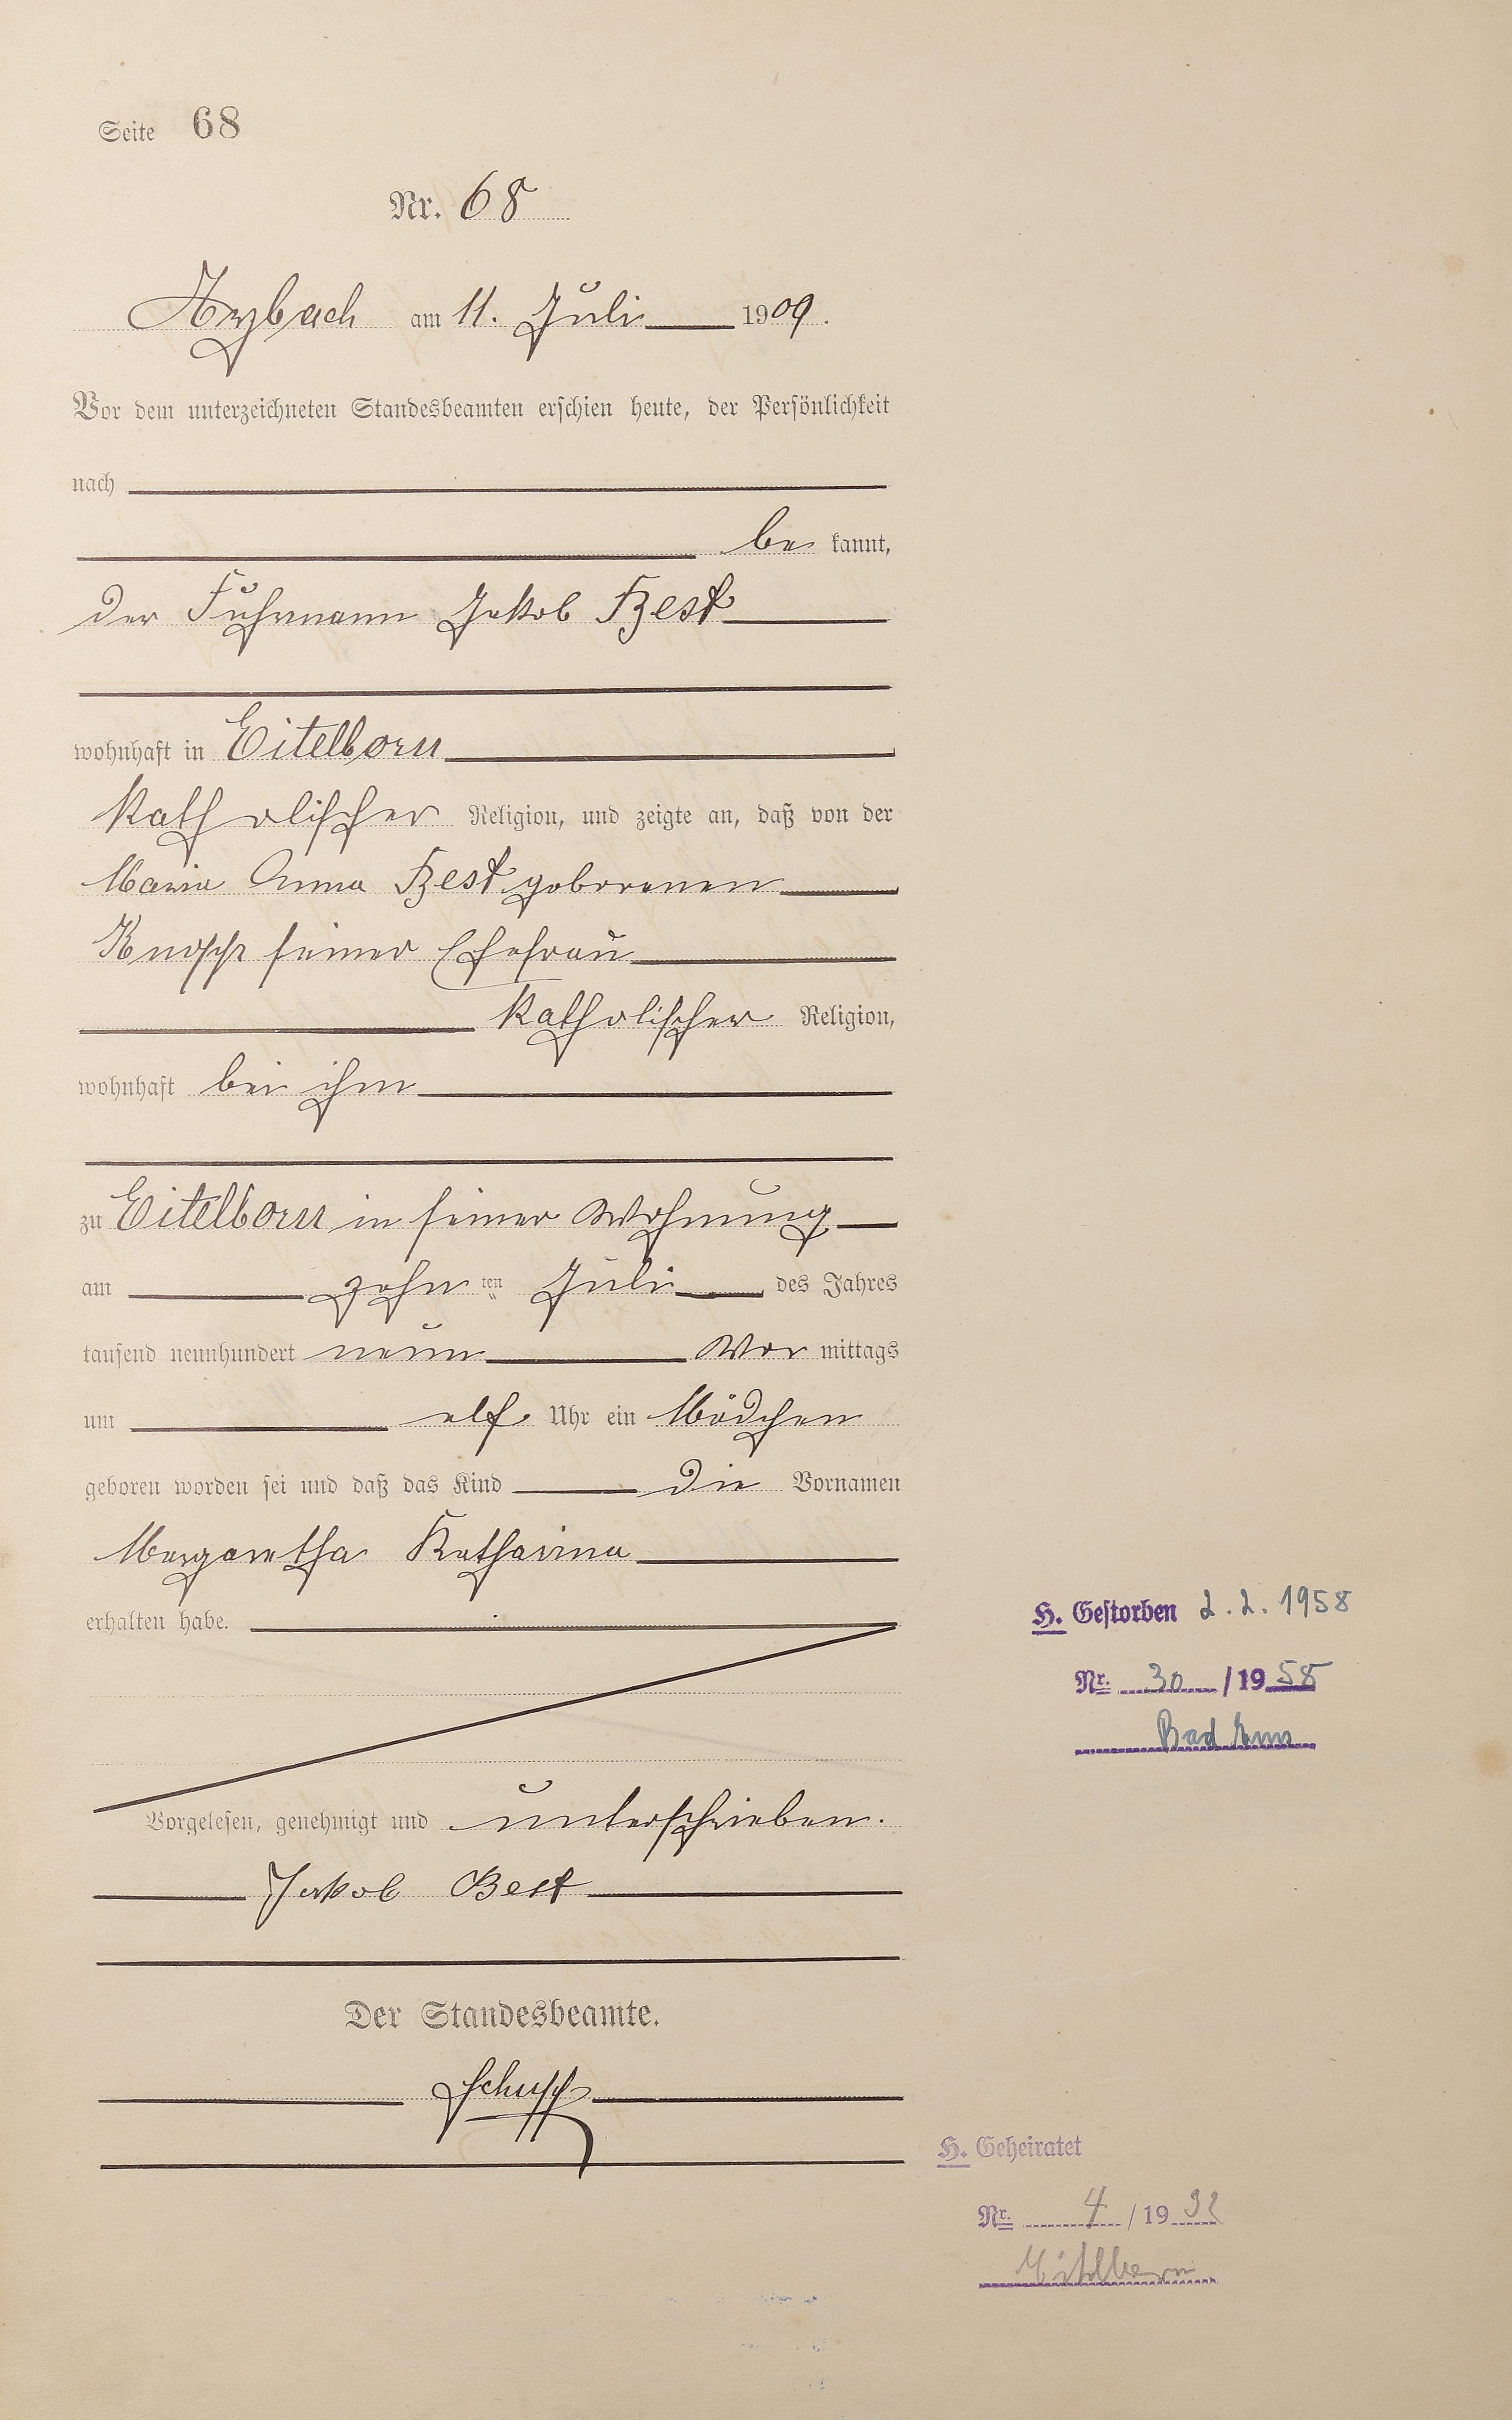 Seite 68
Nr. 68
Arzbach am 11. Juli 1909.
Vor dem unterzeichneten Standesbeamten erschien heute, der Persönlichkeit
nach
be kannt,
der Fuhrmann Jakob Best
wohnhaft in Eitelborn
katholischer Religion, und zeigte an, daß von der
Maria Anna Best geborenen
Knopp seiner Ehefrau
katholischer Religion,
wohnhaft bei ihm
zu Eitelborn in seiner Wohnung
am zehn ten Juli des Jahres
tausend neunhundert neun Vor mittags
um elf Uhr ein Mädchen
geboren worden sei und daß das Kind die Vornamen
Margaretha Katharina
erhalten habe.
H. Gestorben 2.2.1958
Nr. 30 / 19 58
Bad Ems
Vorgelesen, genehmigt und unterschrieben.
Jakob Best
Der Standesbeamte.
Schupp
H. Geheiratet
Nr. 4 / 19 32
Eitelborn